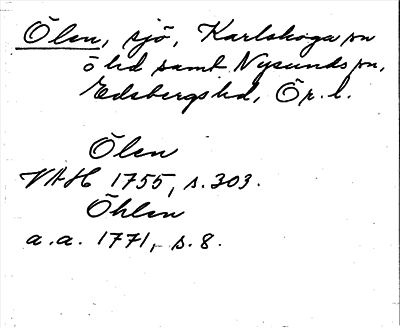 Ölen, sjö, Karlskoga sn
ö hd samt Nysunds sn,
Edsbergs hd, Ör. l.
Ölen
VAH 1755, s. 303.
Öhlen
a.a. 1771, s. 8.